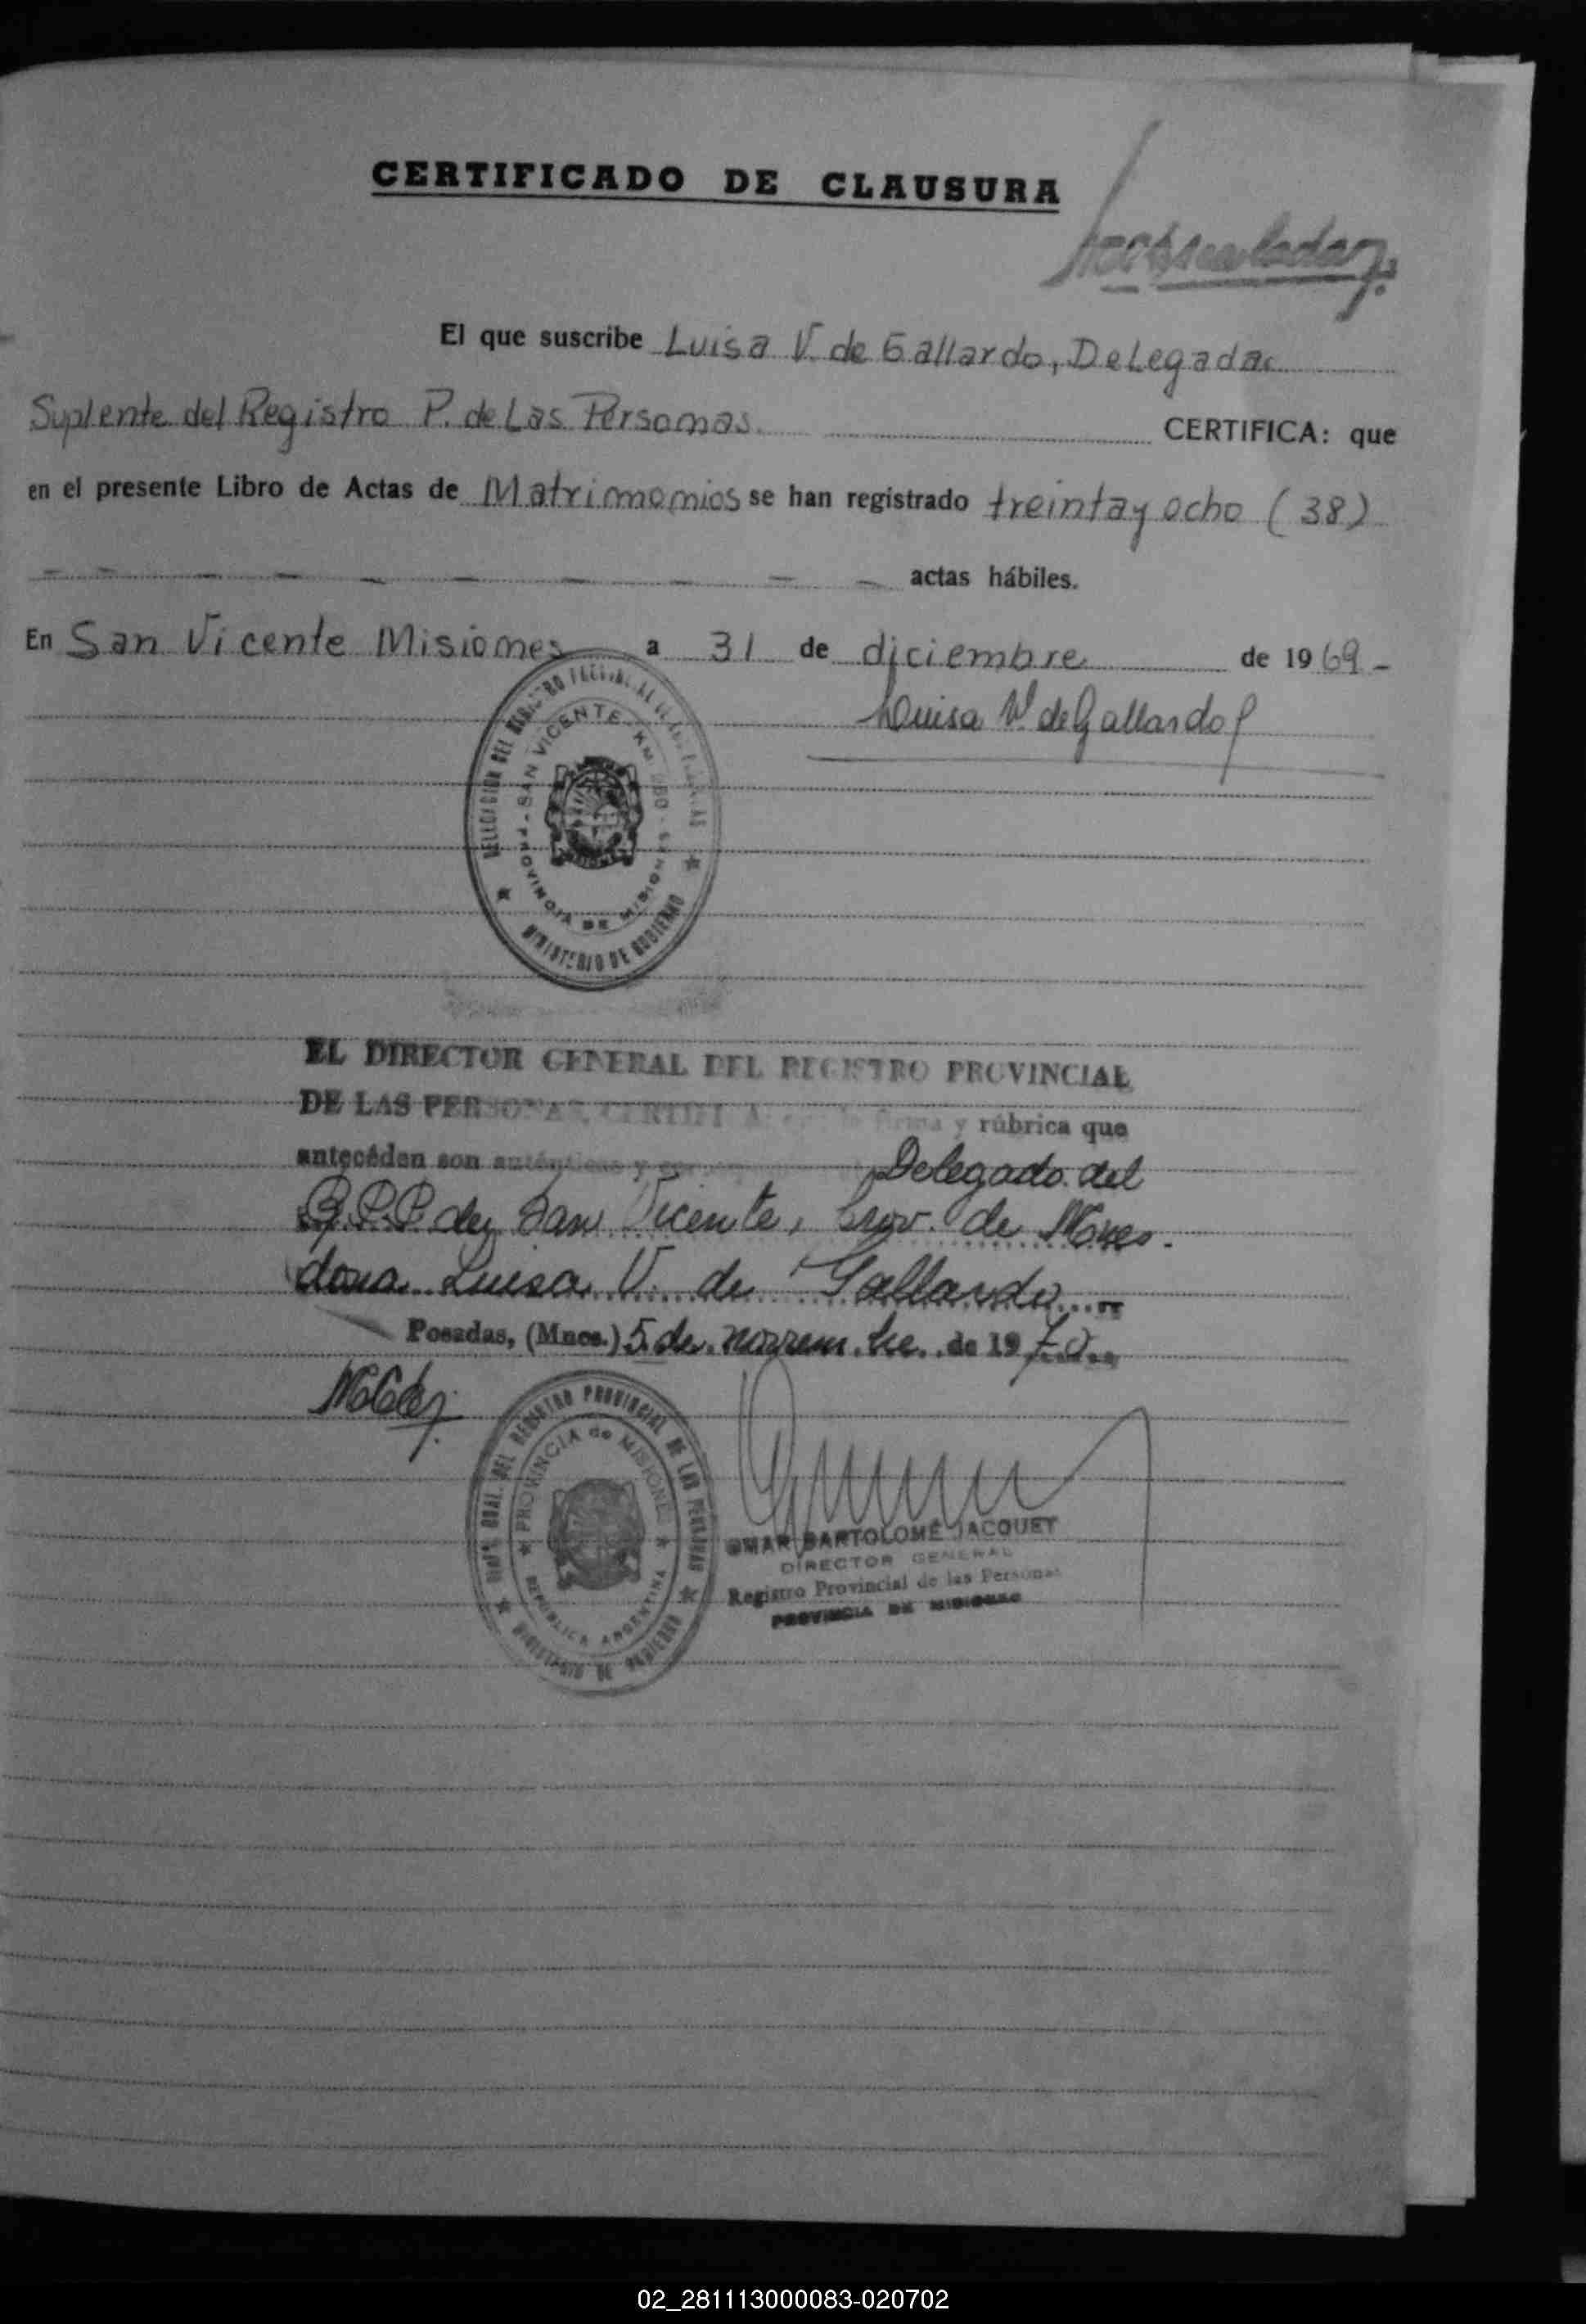 CERTIFICADO DE CLAUSURA
El que suscribe Luisa V. de Gallardo, Delegada
Suplente del Registro P. de Las Personas. CERTIFICA: que
en el presente Libro de Actas de Matrimonios se han registrado treinta y ocho (38)
actas hábiles.
En San Vicente Misiones a 31 de diciembre de 1969 -
Luisa V. de Gallardo
DELEGACION DEL REGISTRO PROVINCIAL DE LAS PERSONAS
SAN VICENTE - KM
PROVINCIA DE MISIONES
MINISTERIO DE GOBIERNO
EL DIRECTOR GENERAL DEL REGISTRO PROVINCIAL
DE LAS PERSONAS, CERTIFICA: firma y rúbrica que
anteceden son auténticas y Delegado del
R.P.P. de San Vicente, Prov. de Mnes.
doña Luisa V. de Gallardo
Posadas, (Mnes.) 5 de noviembre de 1970
DIRº GRAL. DEL REGISTRO PROVINCIAL DE LAS PERSONAS
PROVINCIA de MISIONES
REPUBLICA ARGENTINA
MINISTERIO DE GOBIERNO
OMAR BARTOLOMÉ JACQUET
DIRECTOR GENERAL
Registro Provincial de las Personas
PROVINCIA DE MISIONES
02_281113000083-020702